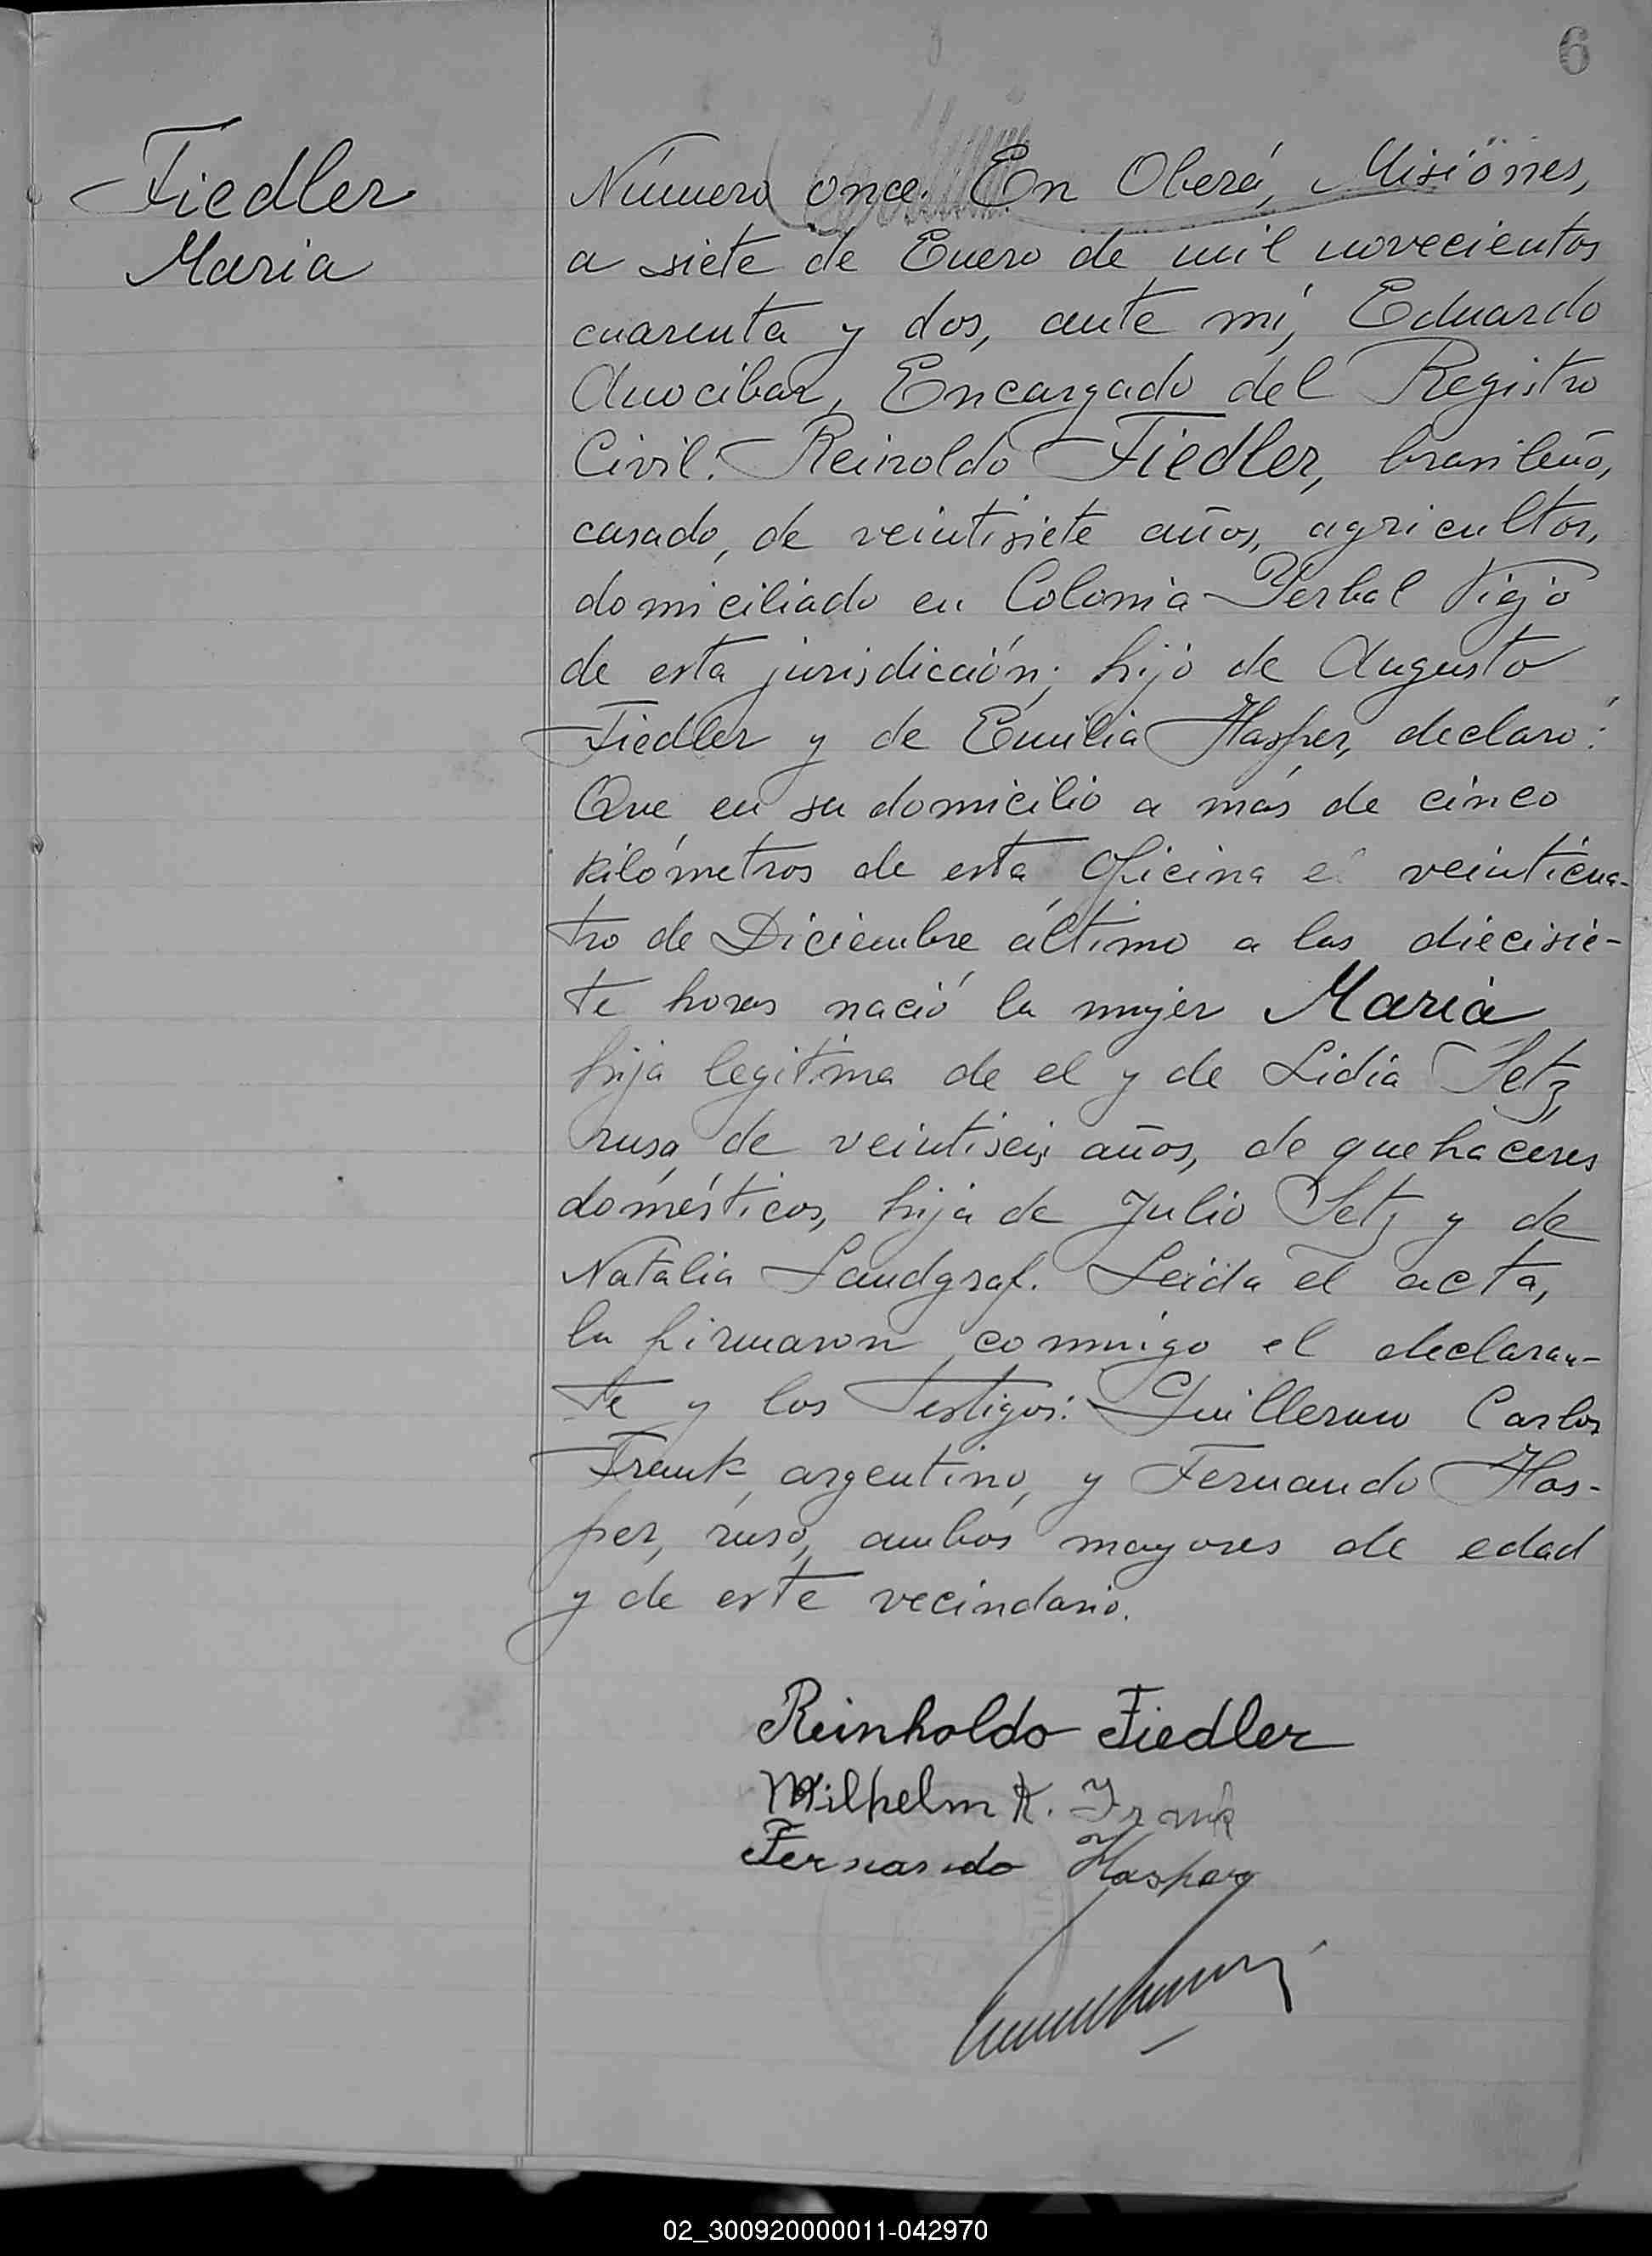 6
Fiedler
Maria
Número once. En Oberá, Misiones,
a siete de Enero de mil novecientos
cuarenta y dos, ante mí, Eduardo
Anocibar, Encargado del Registro
Civil. Reinoldo Fiedler, brasileño,
casado, de veintisiete años, agricultor,
domiciliado en Colonia Yerbal Viejo
de esta jurisdicción; hijo de Augusto
Fiedler y de Emilia Hasper, declaró:
Que en su domicilio a más de cinco
kilómetros de esta Oficina el veinticua-
tro de Diciembre último a las diecisie-
te horas nació la mujer Maria
hija legítima de el y de Lidia Setz,
rusa, de veintiseis años, de quehaceres
domésticos, hija de Julio Setz y de
Natalia Landgraf. Leída el acta,
la firmaron conmigo el declaran-
te y los testigos: Guillermo Carlos
Frank, argentino, y Fernando Has-
per, ruso, ambos mayores de edad
y de este vecindario.
Reinholdo Fiedler
Wilhelm K. Frank
Fernando Hasper
02_300920000011-042970